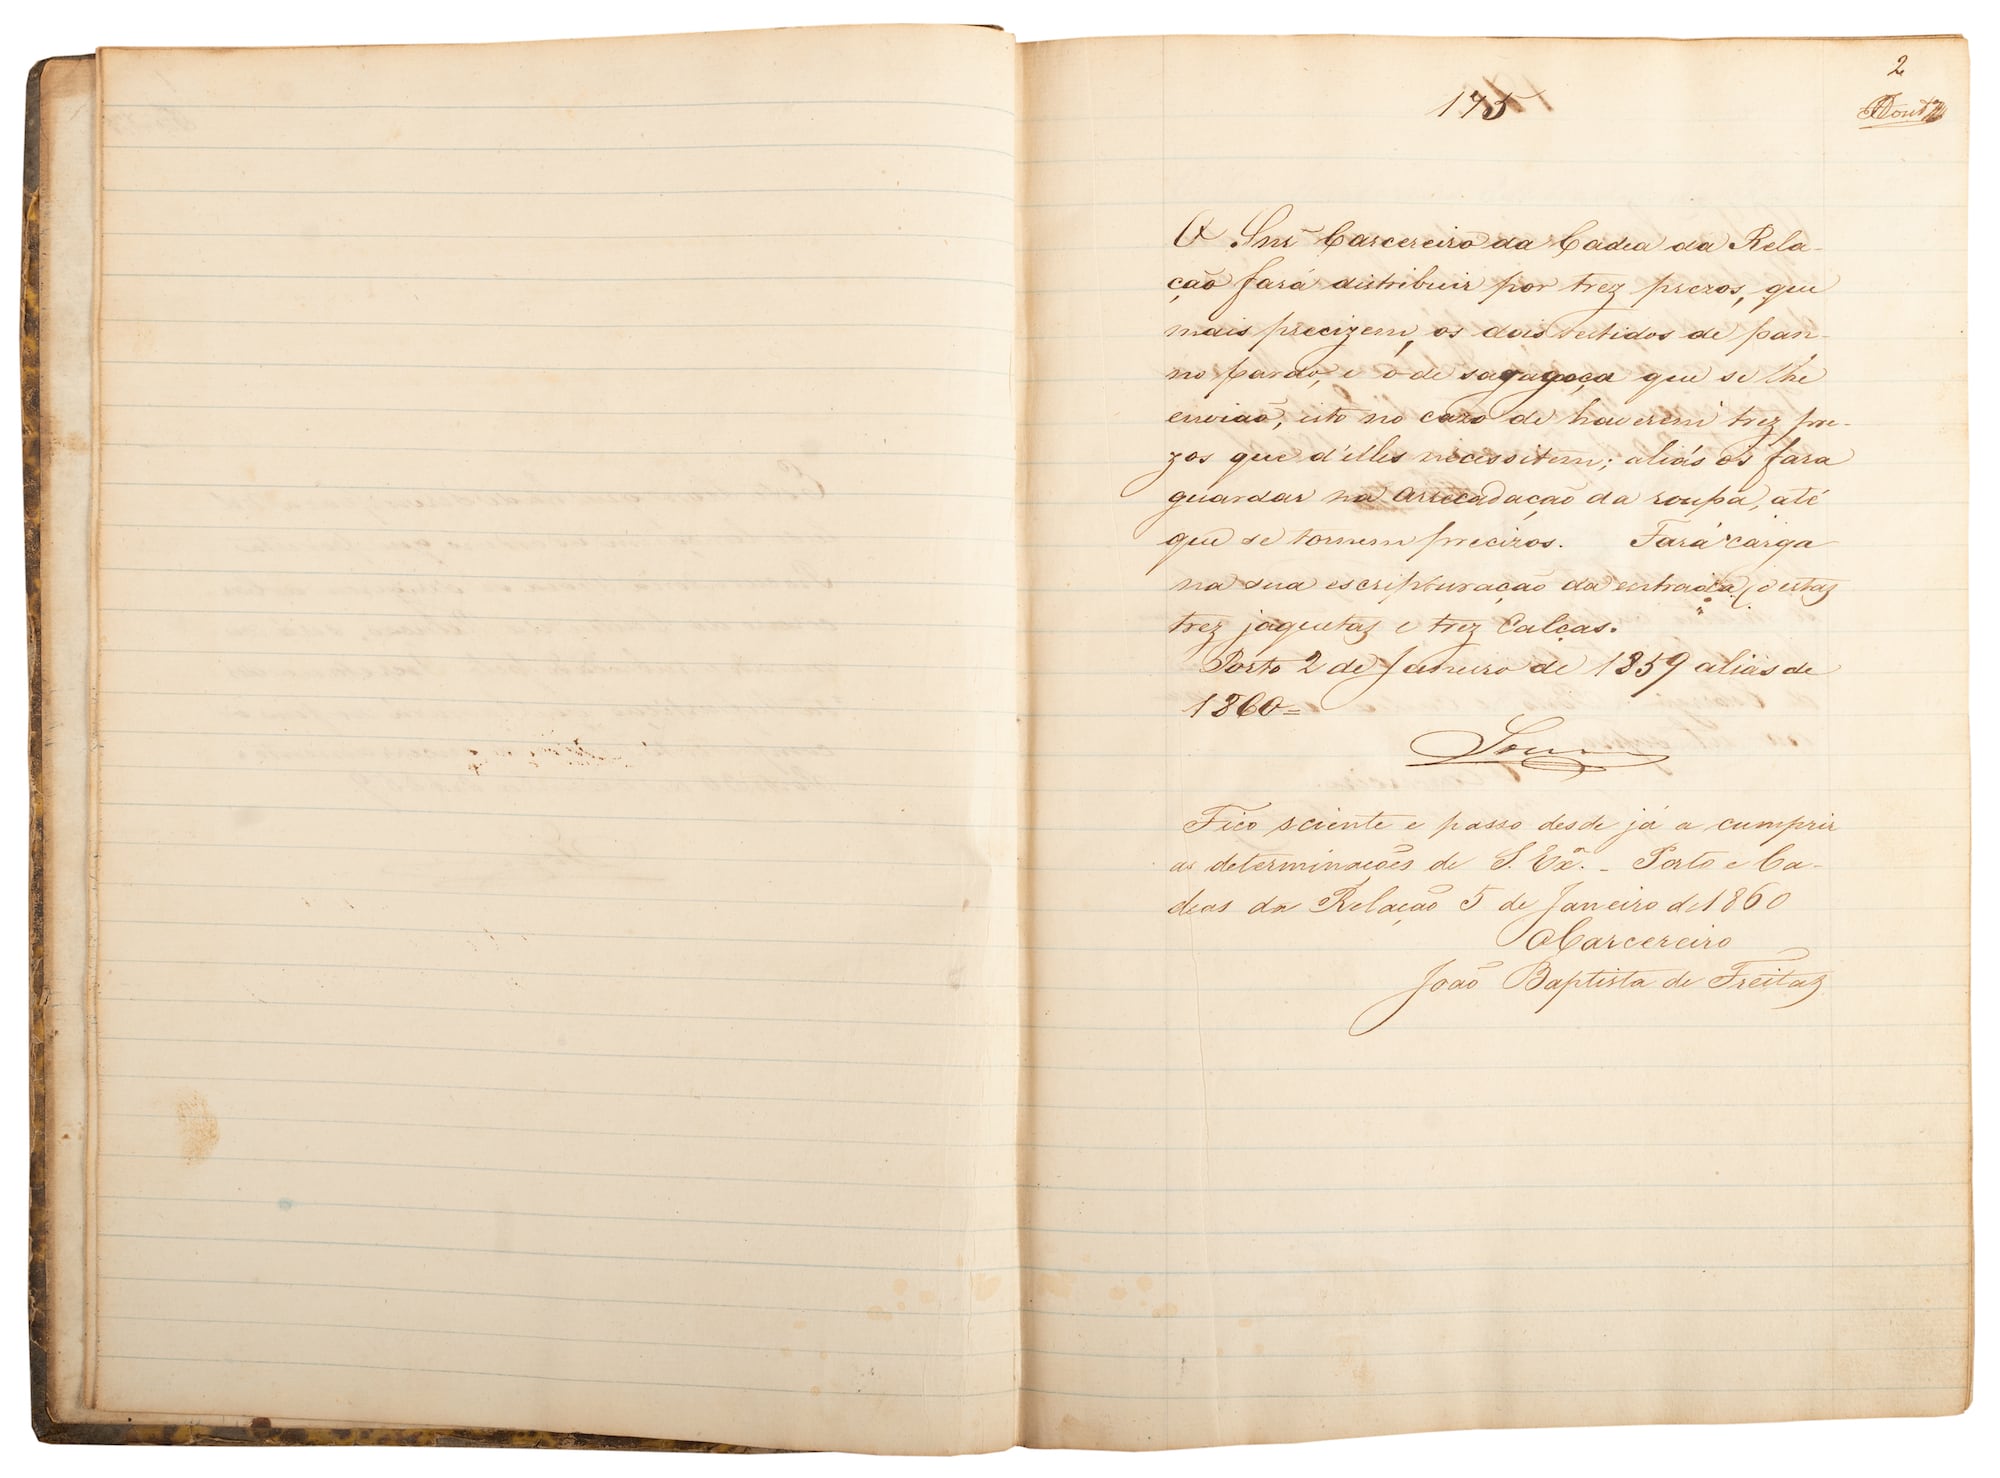 2
175
O Snr Carcereiro da Cadea da Rela-
ção fará distribuir por trez prezos, que
mais precizem, os dois vestidos de pan-
no pardo, e o de saragoça que se lhe
envião, isto no cazo de haverem trez pre-
zos que d'elles necessitem; aliás os fara
guardar na arrecadação da roupa, até
que se tornem precizos. Fará carga
na sua escripturação da entrada, d'estas
trez jaquetas e trez Calças.
Porto 2 de Janeiro de 1859 aliás de
1860=
Fico sciente e passo desde já a cumprir
as determinações de S. Exª. - Porto e Ca-
deas da Relação 5 de Janeiro de 1860
O Carcereiro
João Baptista de Freitas